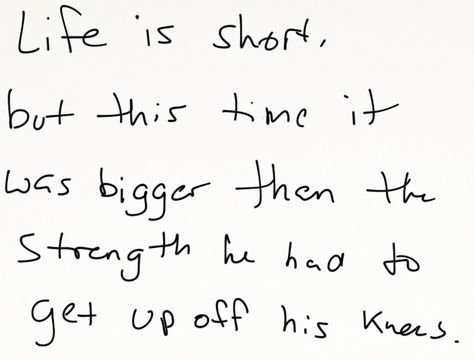 Life is short,
but this time it
was bigger then the
strength he had to
get up off his knees.